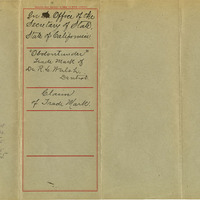 In the Office of the
Secretary of State,
State of California.
Trade Mark of
Dr. R. L. Walsh,
Dentist.
Claim
of Trade Mark